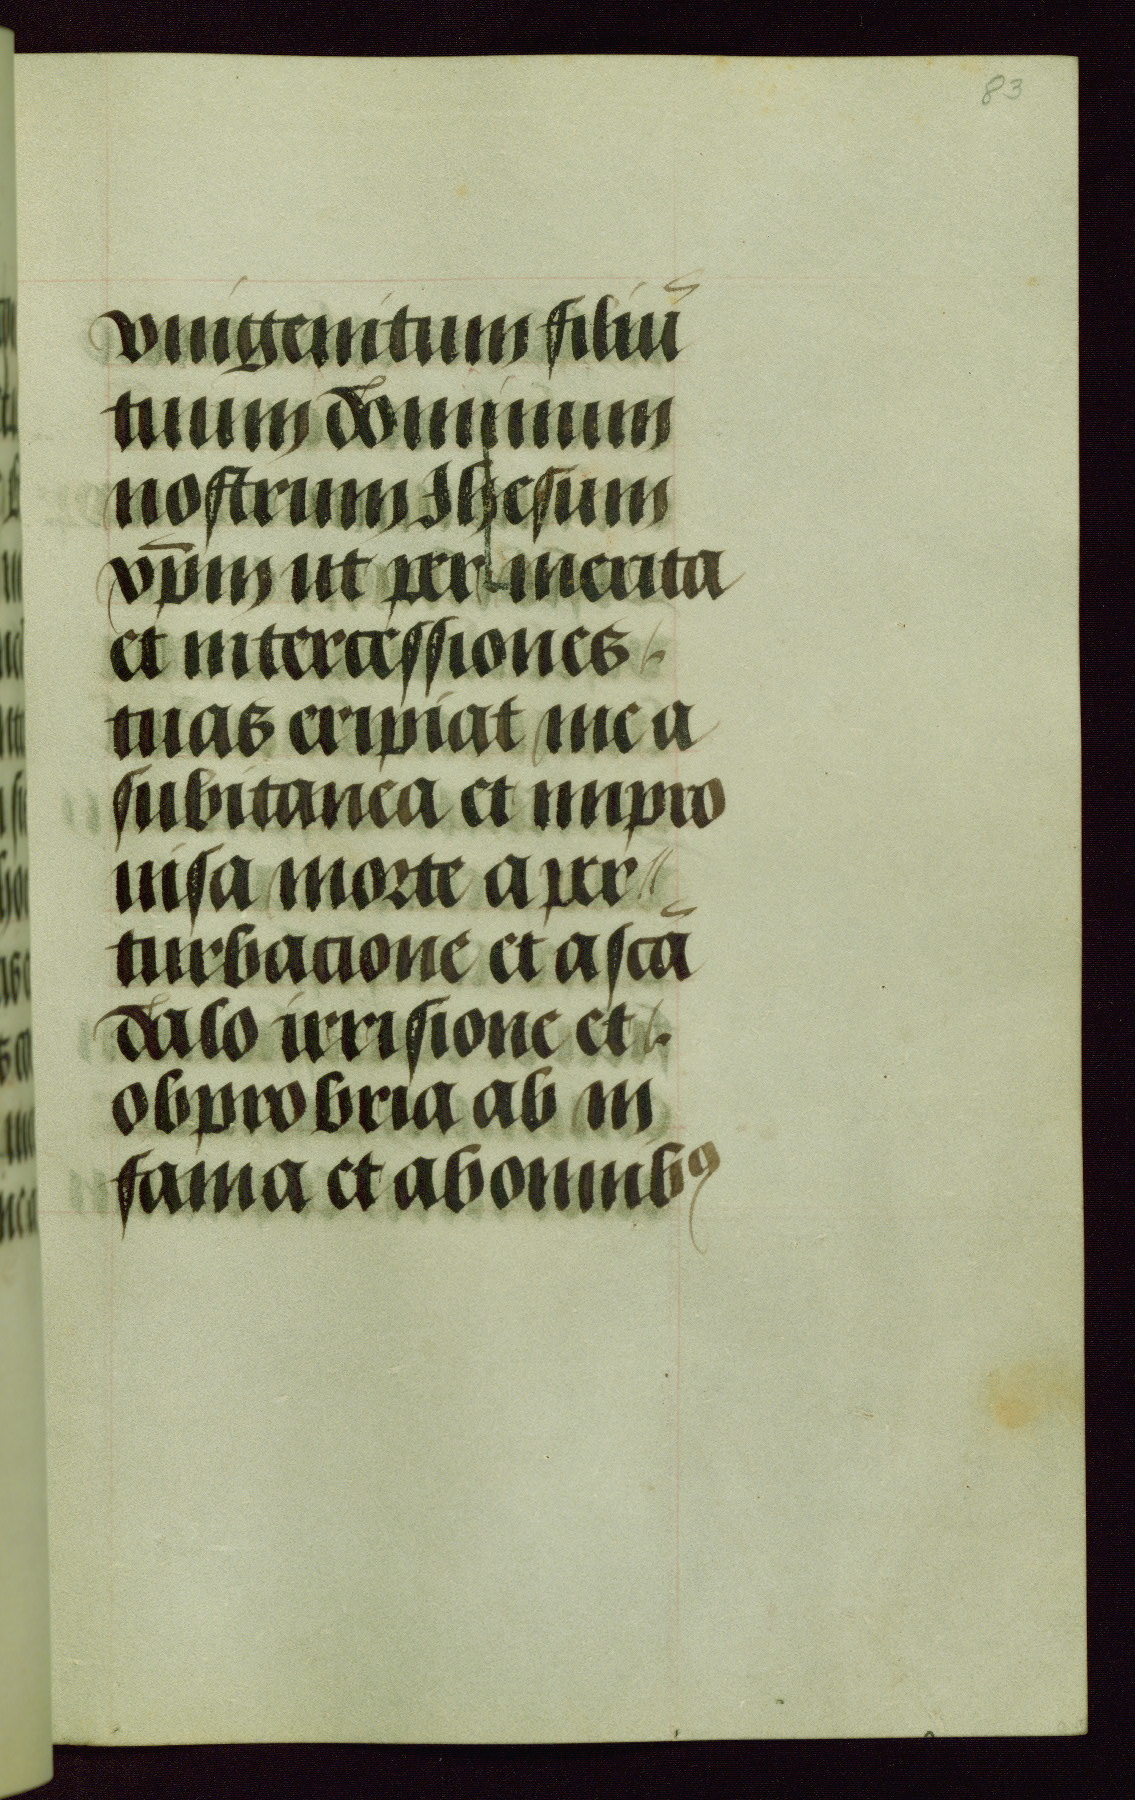 83
vnigenitum filiū
tuum dominum
nostrum Jhesum
xp̄m ut per merita
et intercessiones
tuas eripiat me a
subitanea et impro
uisa morte a per
turbacione et a scā
dalo irrisione et
obprobria ab in
famia et ab omnibꝰ